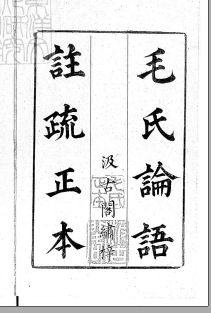 毛氏論語
汲古閣繡梓
註疏正本